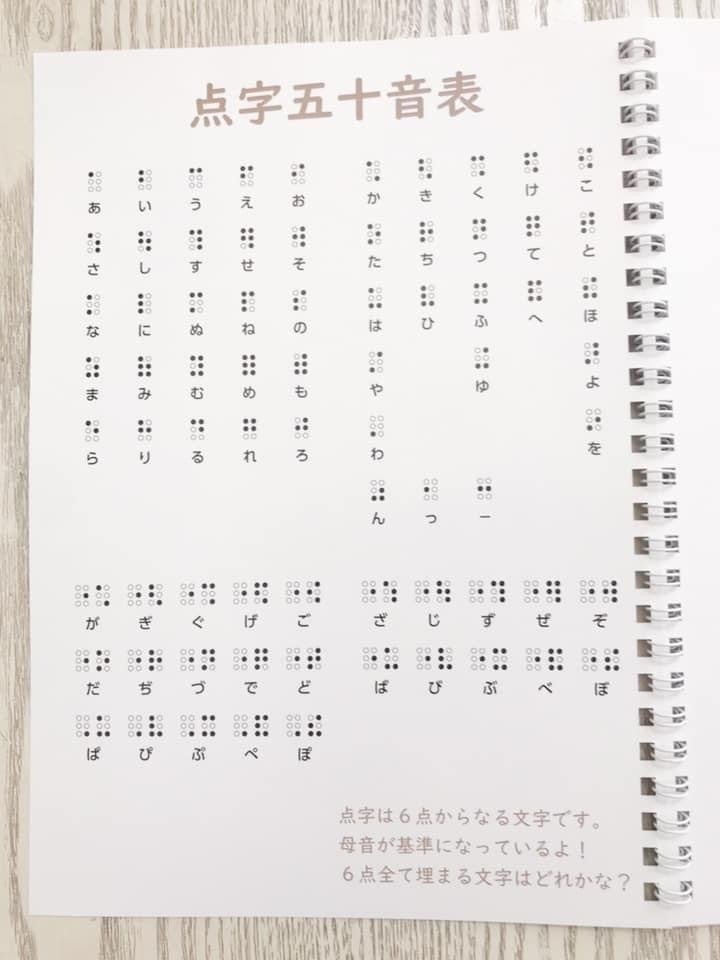 点字五十音表
あ い う え お か き く け こ
さ し す せ そ た ち つ て と
な に ぬ ね の は ひ ふ へ ほ
ま み む め も や ゆ よ
ら り る れ ろ わ を
ん っ ー
が ぎ ぐ げ ご ざ じ ず ぜ ぞ
だ ぢ づ で ど ば び ぶ べ ぼ
ぱ ぴ ぷ ぺ ぽ
点字は6点からなる文字です。
母音が基準になっているよ!
6点全て埋まる文字はどれかな?